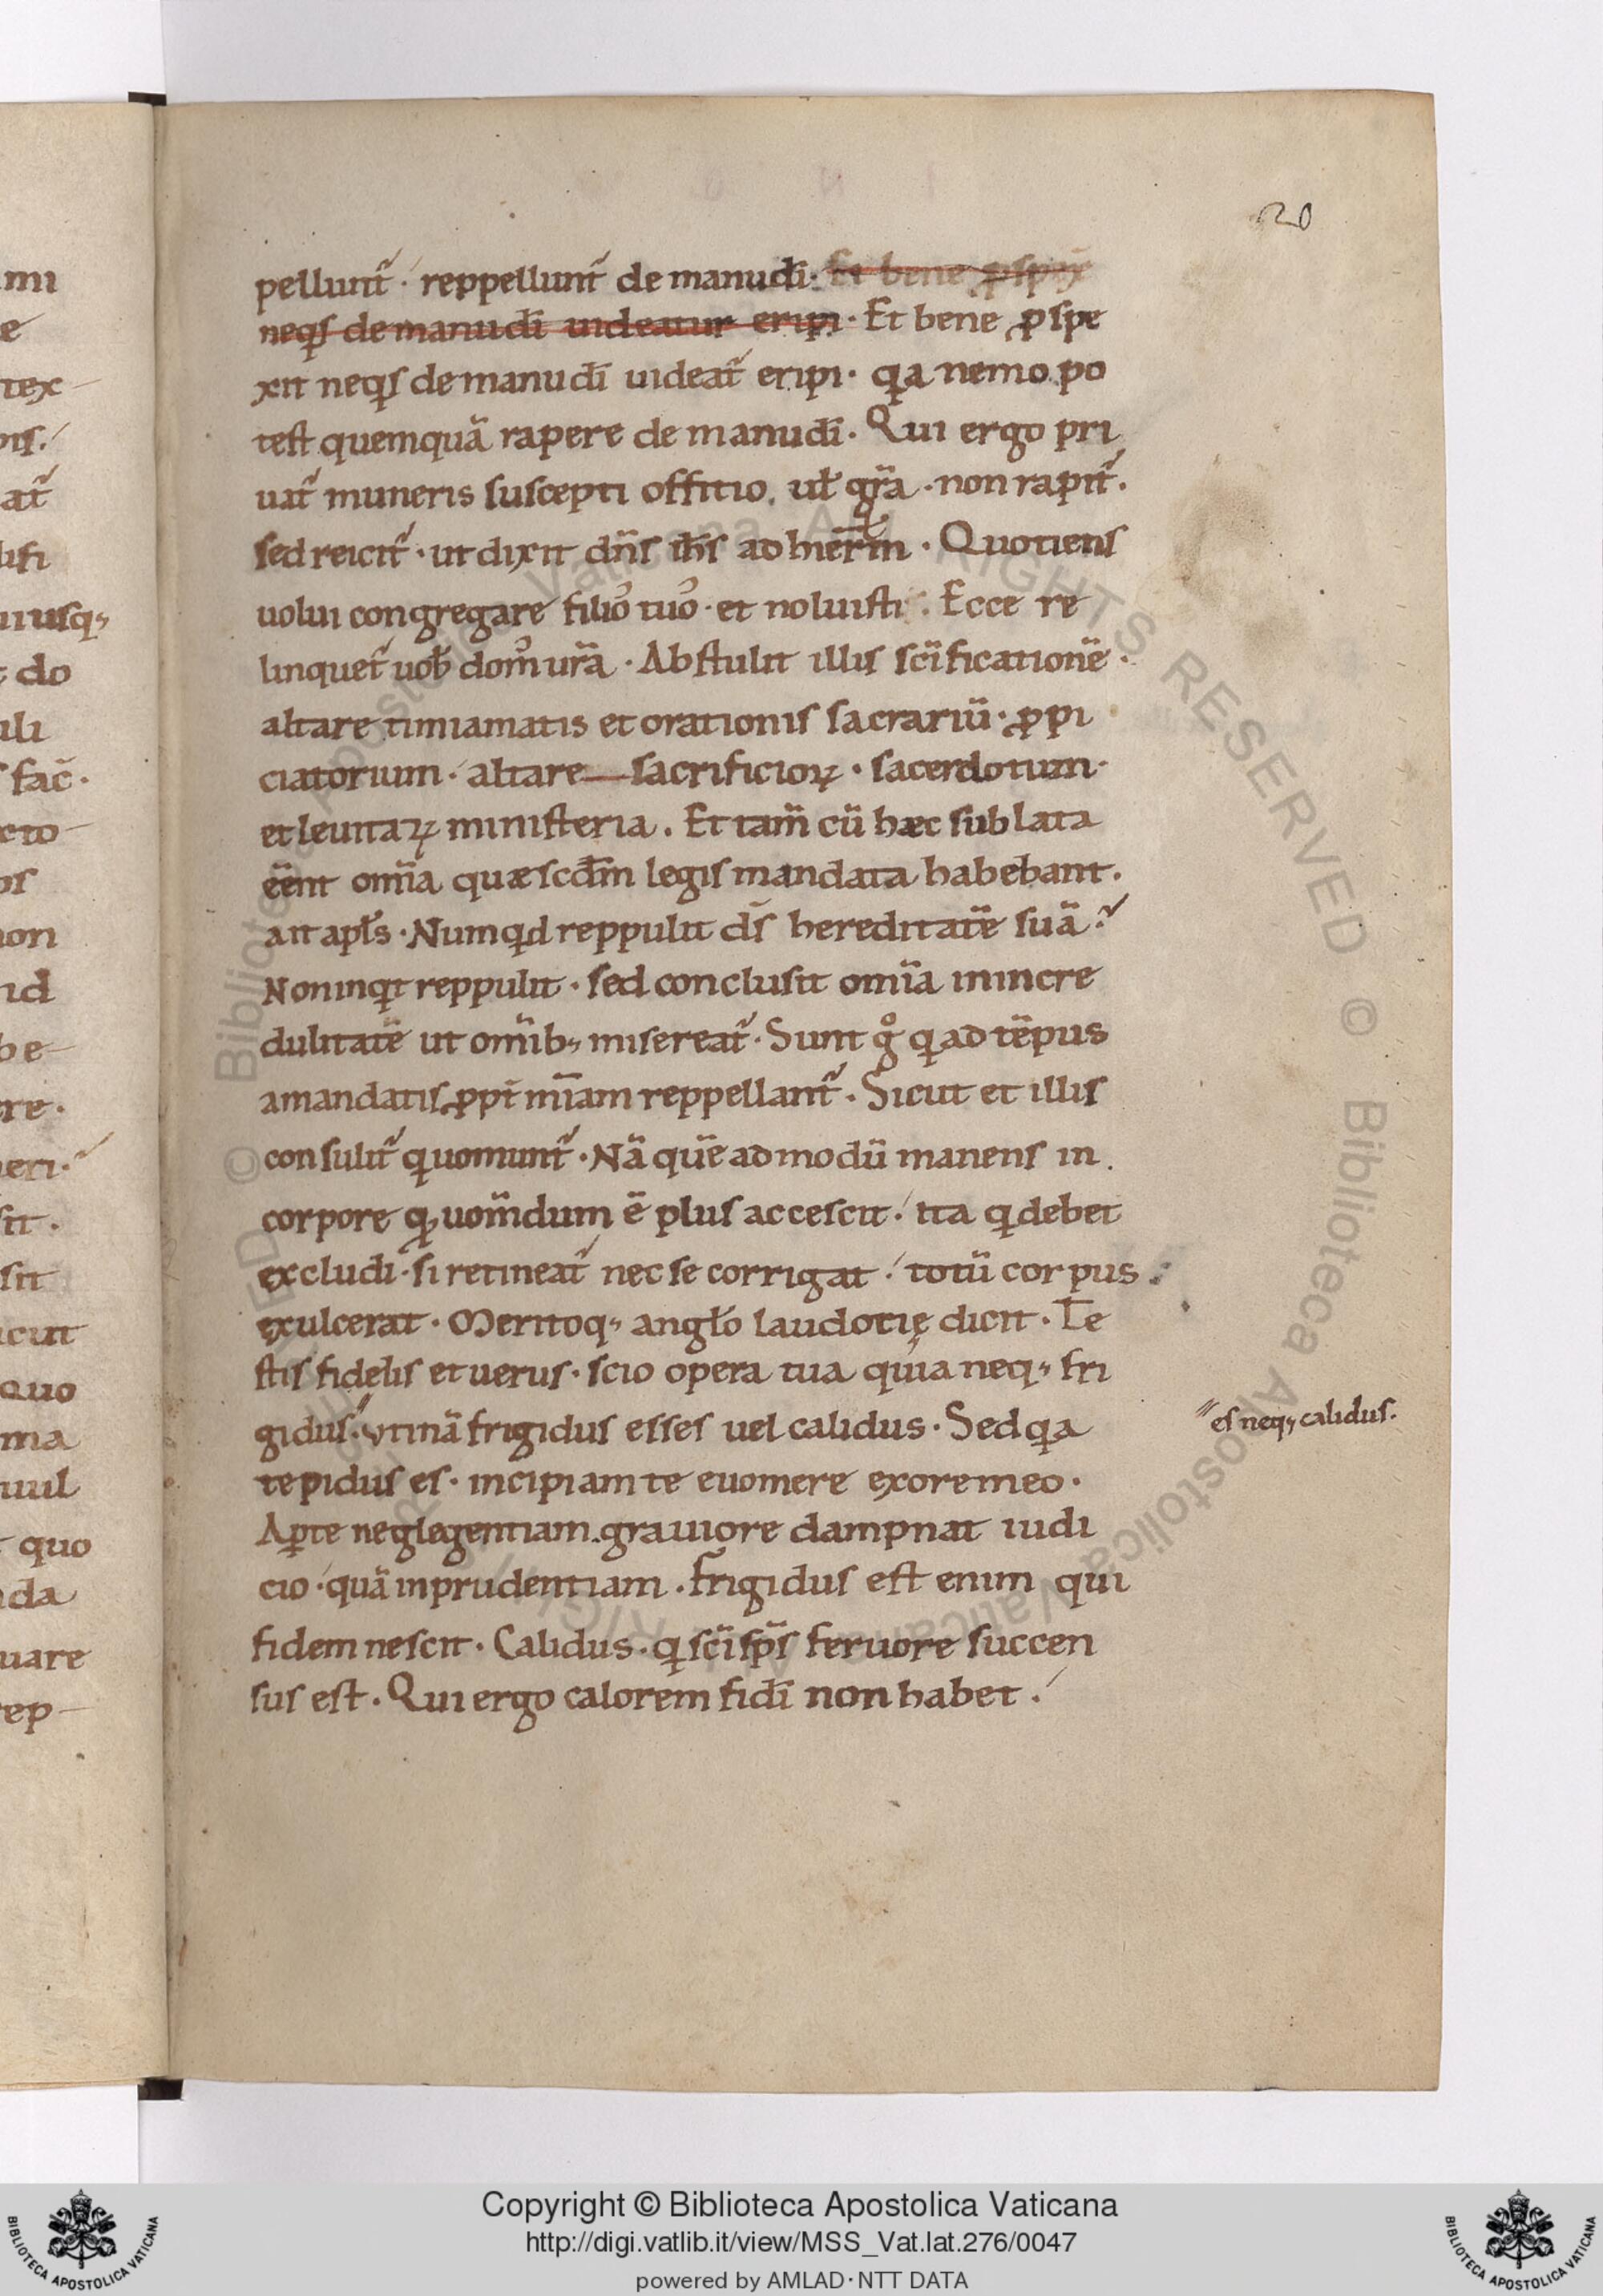 20
pellunt᷑ · reppellunt᷑ de manu dī · Et bene ꝓspex̄
neq̨s de manu dī uideatur eripi · Et bene ꝓspe
xit neq̨s de manu dī uideat᷑ eripi · qa nemo po
test quemquā rapere de manu dī · Qui ergo pri
uat᷑ muneris suscepti offitio, ul̄ gr̄a · non rapit᷑ ·
sed reicit᷑ · ut dixit dn̄s ih̄s ad hierl̄m · Quotiens
uolui congregare filioʼ tuoʼ · et noluisti · Ecce re
linquet᷑ uob̄ domʼ ur̄a · Abstulit illis sc̄ificationē ·
altare timiamatis et orationis sacrariū · ꝓpi
ciatorium · altare — sacrificioꝝ · sacerdotum ·
et leuitaꝝ ministeria . Et tam̄ cū hæc sublata
ēēnt om̄ia quæ scd̄m legis mandata habebant .
ait apl̄s · Numqd reppulit ds̄ hereditatē suā ?
Non inqt reppulit · sed conclusit om̄ia in incre
dulitatē ut om̄ib; misereat᷑ · Sunt gͦ q̣ ad tēpus
a mandatis ꝓpt̄ īn̄am reppellant᷑ · Sicut et illis
consulit᷑ q uomunt᷑ · Nā quēadmodū manens in
corpore qḍ uom̄dum ē plus accescit · ita q debet
excludi · si retineat᷑ nec se corrigat · totū corpus
exulcerat · Meritoq; angl̄o laudotię dicit · Te
stis fidelis et uerus · scio opera tua quia neq; fri
gidus · utinā frigidus esses uel calidus · Sed qa
tepidus es · incipiam te euomere ex ore meo ·
Aꝑte neglegentiam grauiore dampnat iudi
cio · quā inprudentiam · Frigidus est enim qui
fidem nescit · Calidus · q sc̄i sp̄s feruore succen
sus est . Qui ergo calorem fidī non habet ·
es neq; calidus.
mi
e
tex
at᷑
iusq;
do
uli
fac̄ ·
cto
non
id
be
re .
eri ·
it .
sit
icut
quo
ma
uul
quo
da
uare
rep
Copyright © Biblioteca Apostolica Vaticana
http://digi.vatlib.it/view/MSS_Vat.lat.276/0047
powered by AMLAD·NTT DATA
BIBLIOTECA APOSTOLICA VATICANA
BIBLIOTECA APOSTOLICA VATICANA